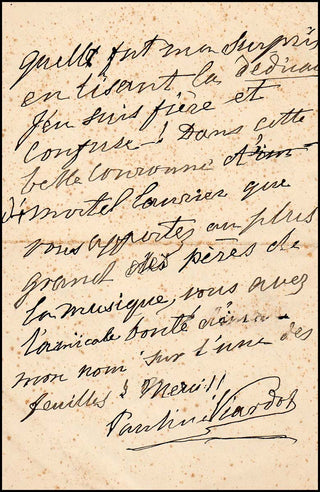 quelle fut ma surpris
en lisant la dédicac
J'en suis fière et
confuse-! Dans cette
belle couronne d'im-
d'immortel laurier que
vous apportez au plus
grand des pères de
la musique, vous avez
l'amicale bonté
mon nom sur l'une des
feuilles! Merci!!
Pauline Viardot